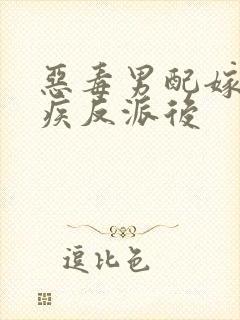 惡毒男配嫁
疾反派後
逗比色